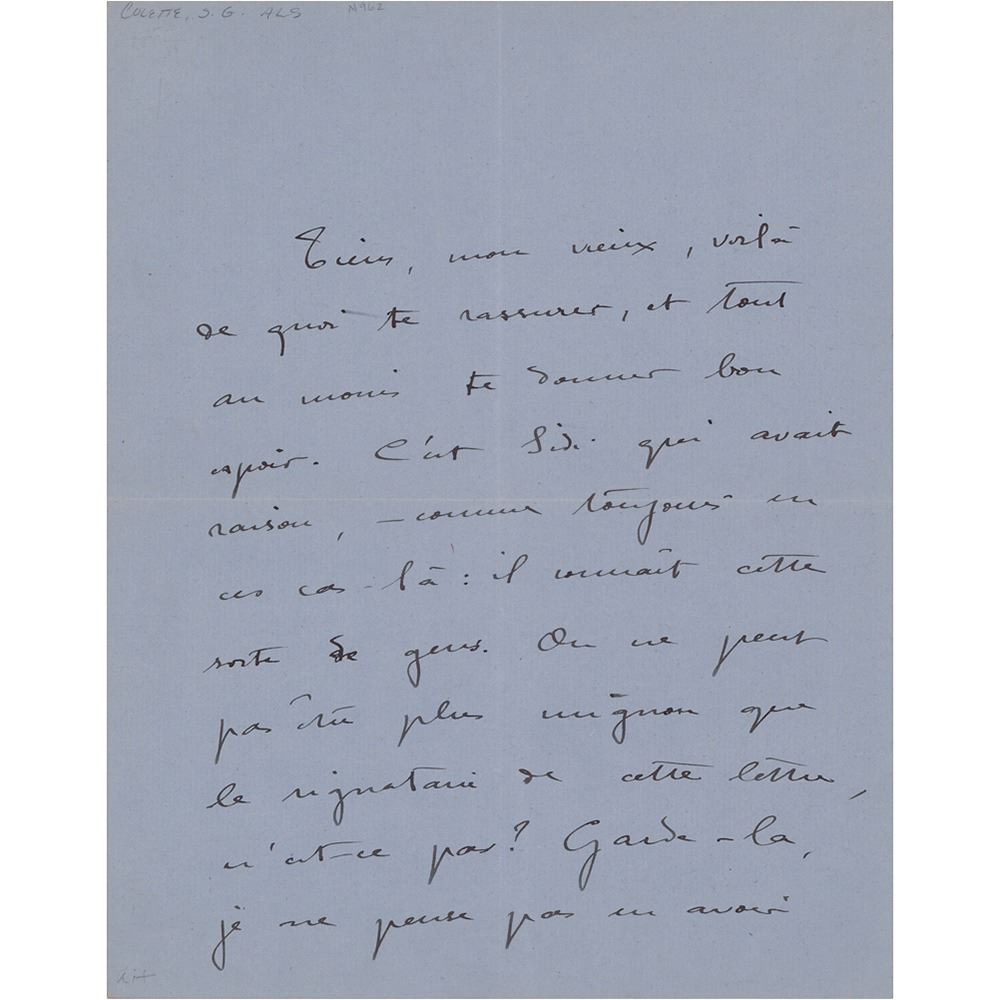 COLETTE, S. G. ALS N962
Tiens, mon vieux, voilà
de quoi te rassurer, et tout
au moins te donner bon
espoir. C'est Sidi qui avait
raison, – comme toujours en
ces cas-là : il connaît cette
sorte de gens. On ne peut
pas être plus mignon que
le signataire de cette lettre,
n'est-ce pas? Garde-la,
je ne pense pas en avoir